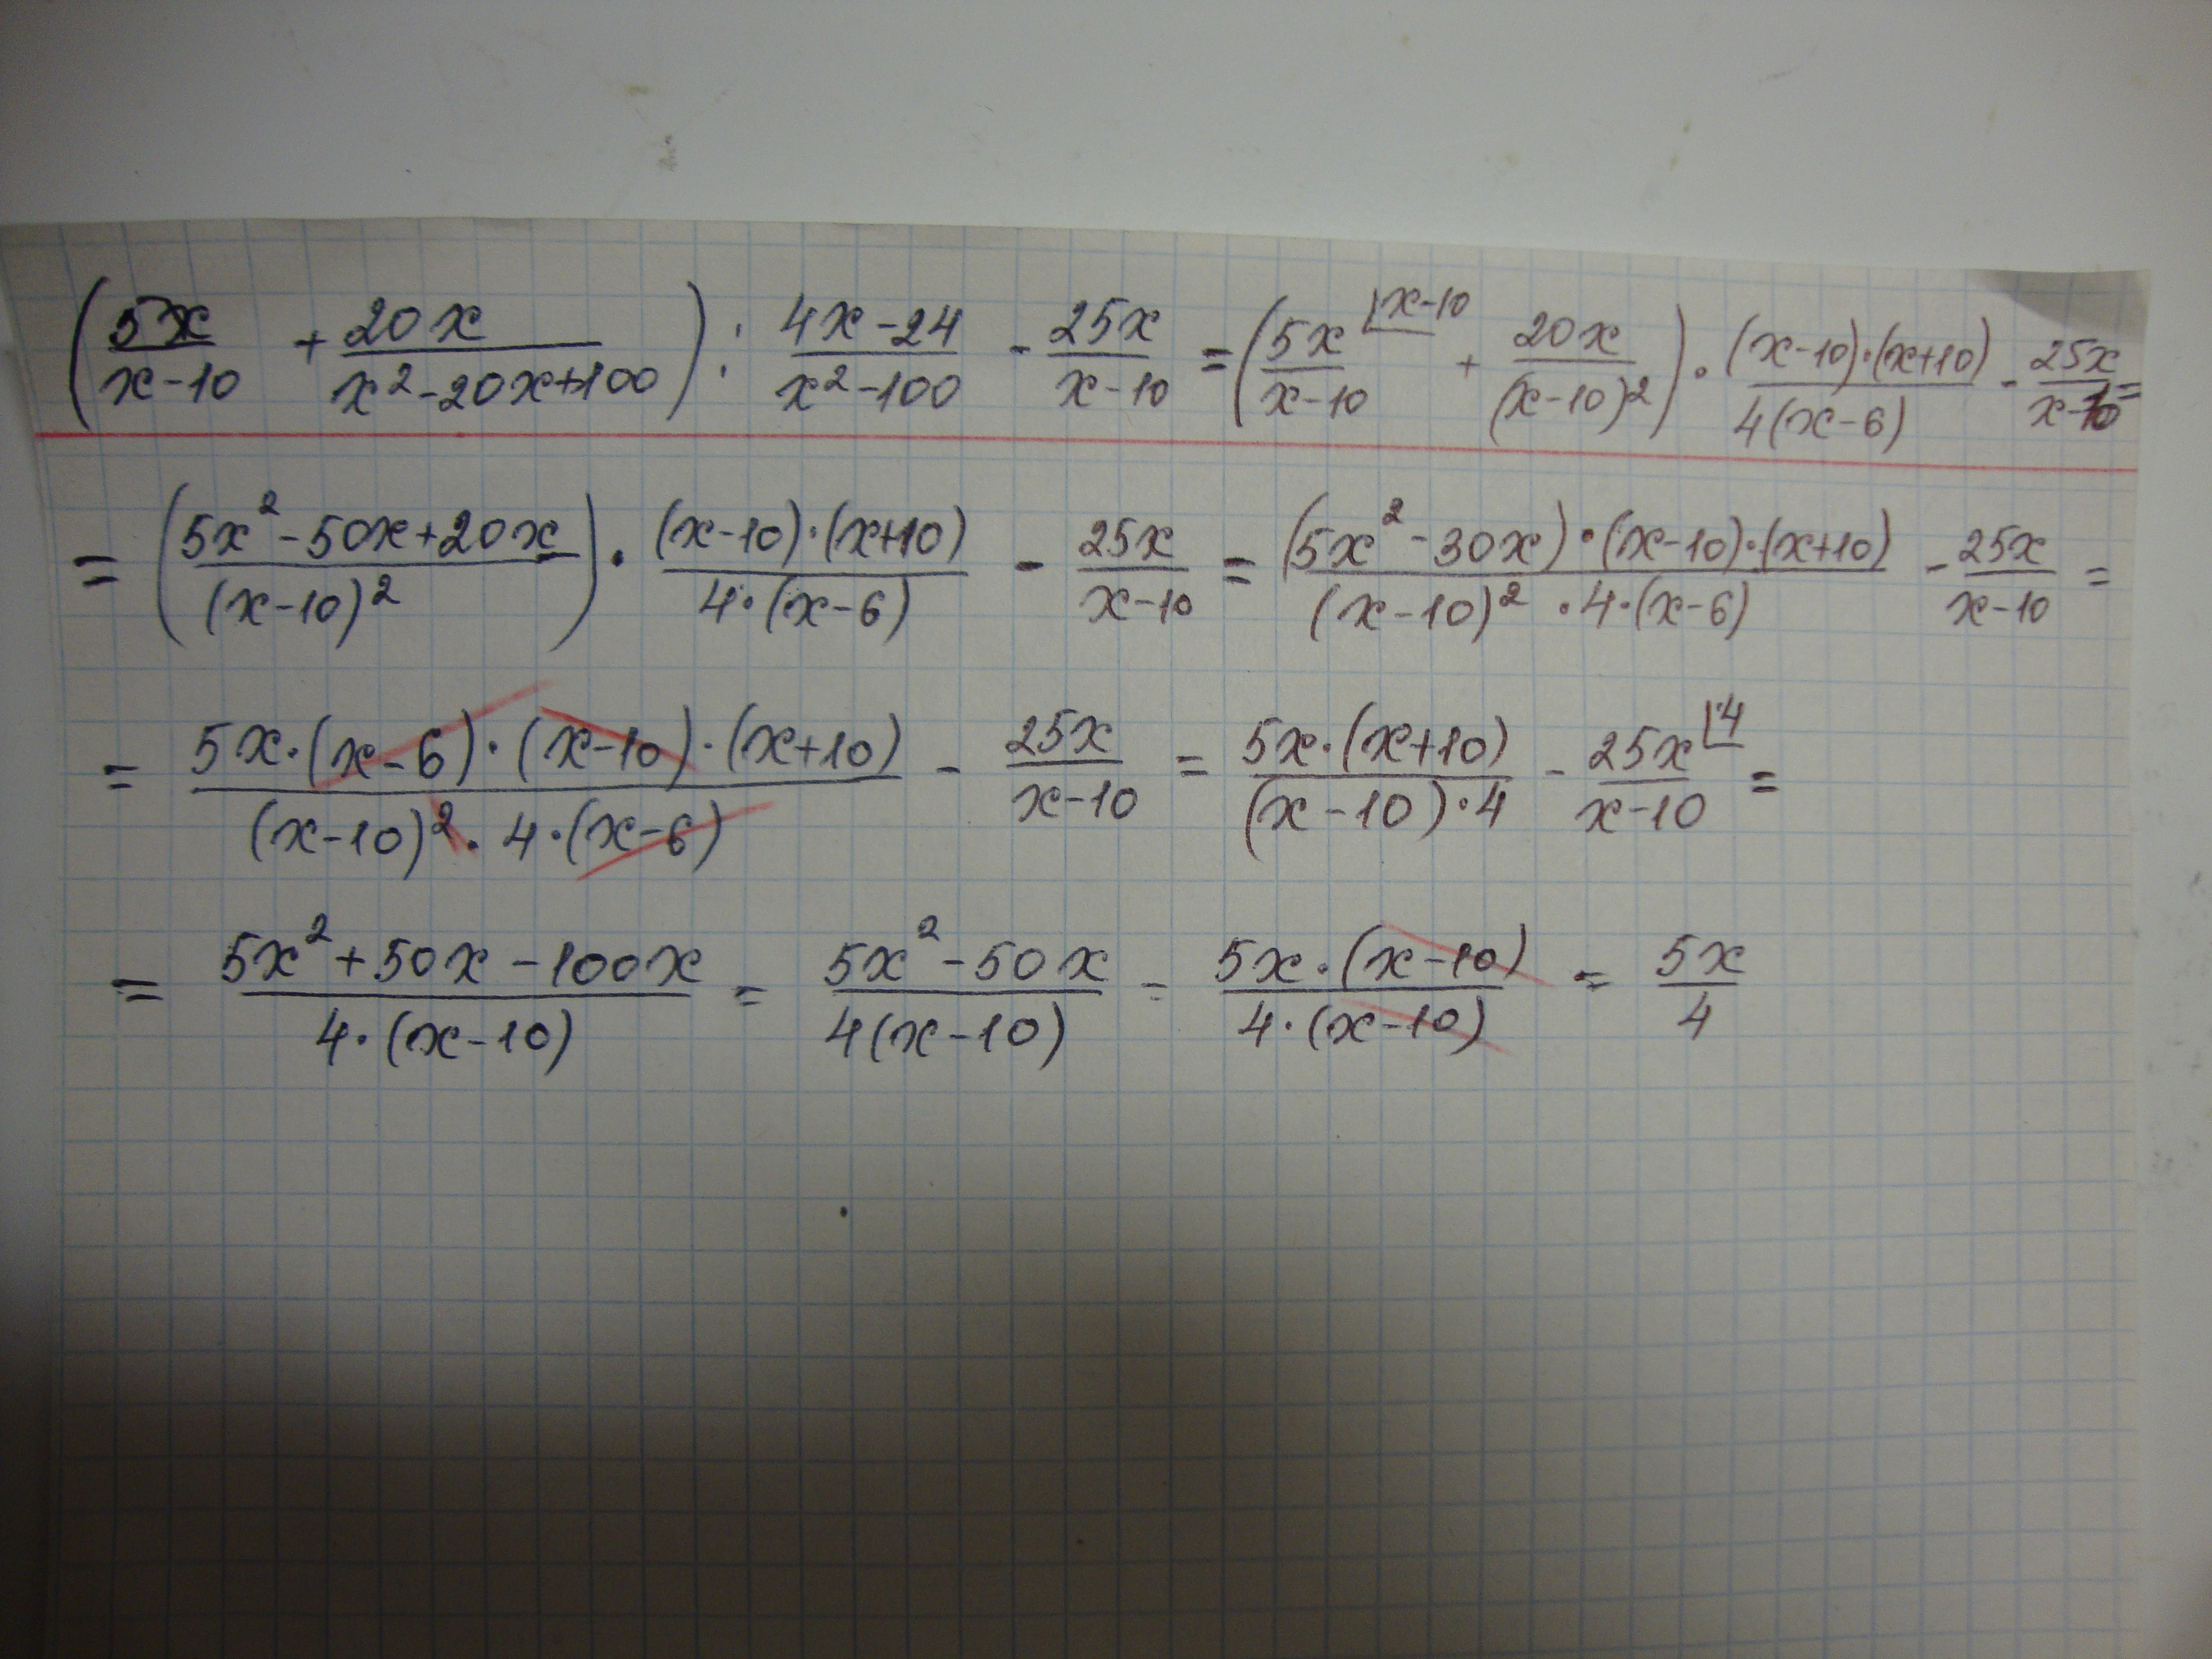 (5x/(x-10) + 20x/(x²-20x+100)) : (4x-24)/(x²-100) - 25x/(x-10) = (5x/(x-10) ⌊x-10 + 20x/(x-10)²) · (x-10)·(x+10)/4(x-6) - 25x/(x-10) =
= ((5x²-50x+20x)/(x-10)²) · (x-10)·(x+10)/4·(x-6) - 25x/(x-10) = (5x²-30x)·(x-10)·(x+10)/(x-10)²·4·(x-6) - 25x/(x-10) =
= 5x·(x-6)·(x-10)·(x+10)/(x-10)²·4·(x-6) - 25x/(x-10) = 5x·(x+10)/(x-10)·4 - 25x/(x-10) ⌊·4 =
= (5x²+50x-100x)/4·(x-10) = (5x²-50x)/4(x-10) = 5x·(x-10)/4·(x-10) = 5x/4